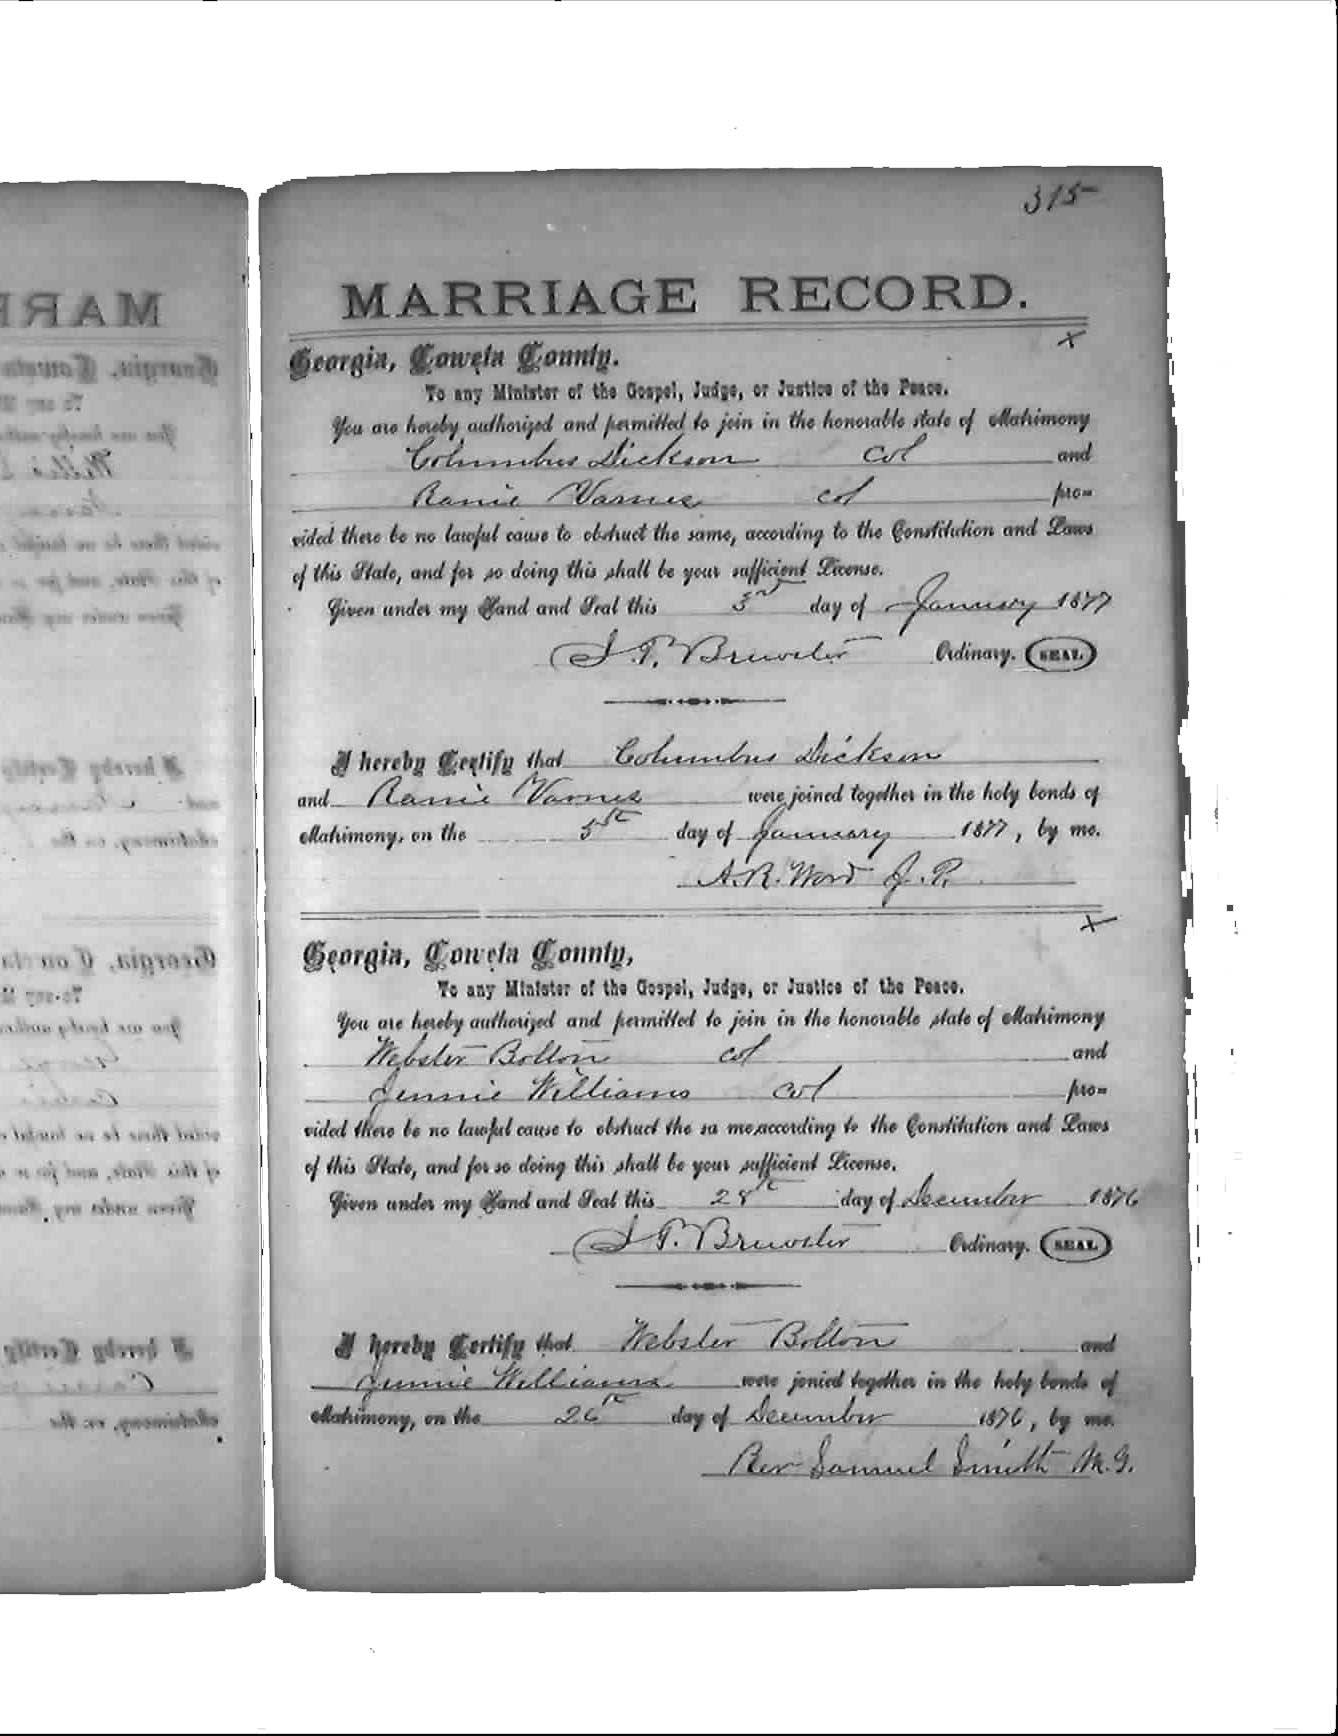 315
MARRIAGE RECORD.
x
Georgia, Coweta County.
To any Minister of the Gospel, Judge, or Justice of the Peace.
You are hereby authorized and permitted to join in the honorable state of Matrimony
Columbus Dickson col and
Ranie Varnes col pro=
vided there be no lawful cause to obstruct the same, according to the Constitution and Laws
of this State, and for so doing this shall be your sufficient License.
Given under my Hand and Seal this 3rd day of January 1877
J. P. Brewster Ordinary. SEAL
I hereby Certify that Columbus Dickson
and Ranie Varnes were joined together in the holy bonds of
Matrimony, on the 5th day of January 1877, by me.
A. R. Word J. P.
x
Georgia, Coweta County,
To any Minister of the Gospel, Judge, or Justice of the Peace.
You are hereby authorized and permitted to join in the honorable state of Matrimony
Webster Bolton col and
Jennie Williams col pro=
vided there be no lawful cause to obstruct the sa me, according to the Constitution and Laws
of this State, and for so doing this shall be your sufficient License.
Given under my Hand and Seal this 28th day of December 1876
J. P. Brewster Ordinary. SEAL
I hereby Certify that Webster Bolton and
Jennie Williams were jonied together in the holy bonds of
Matrimony, on the 26th day of December 1876, by me.
Rev Samuel Smith M. G.